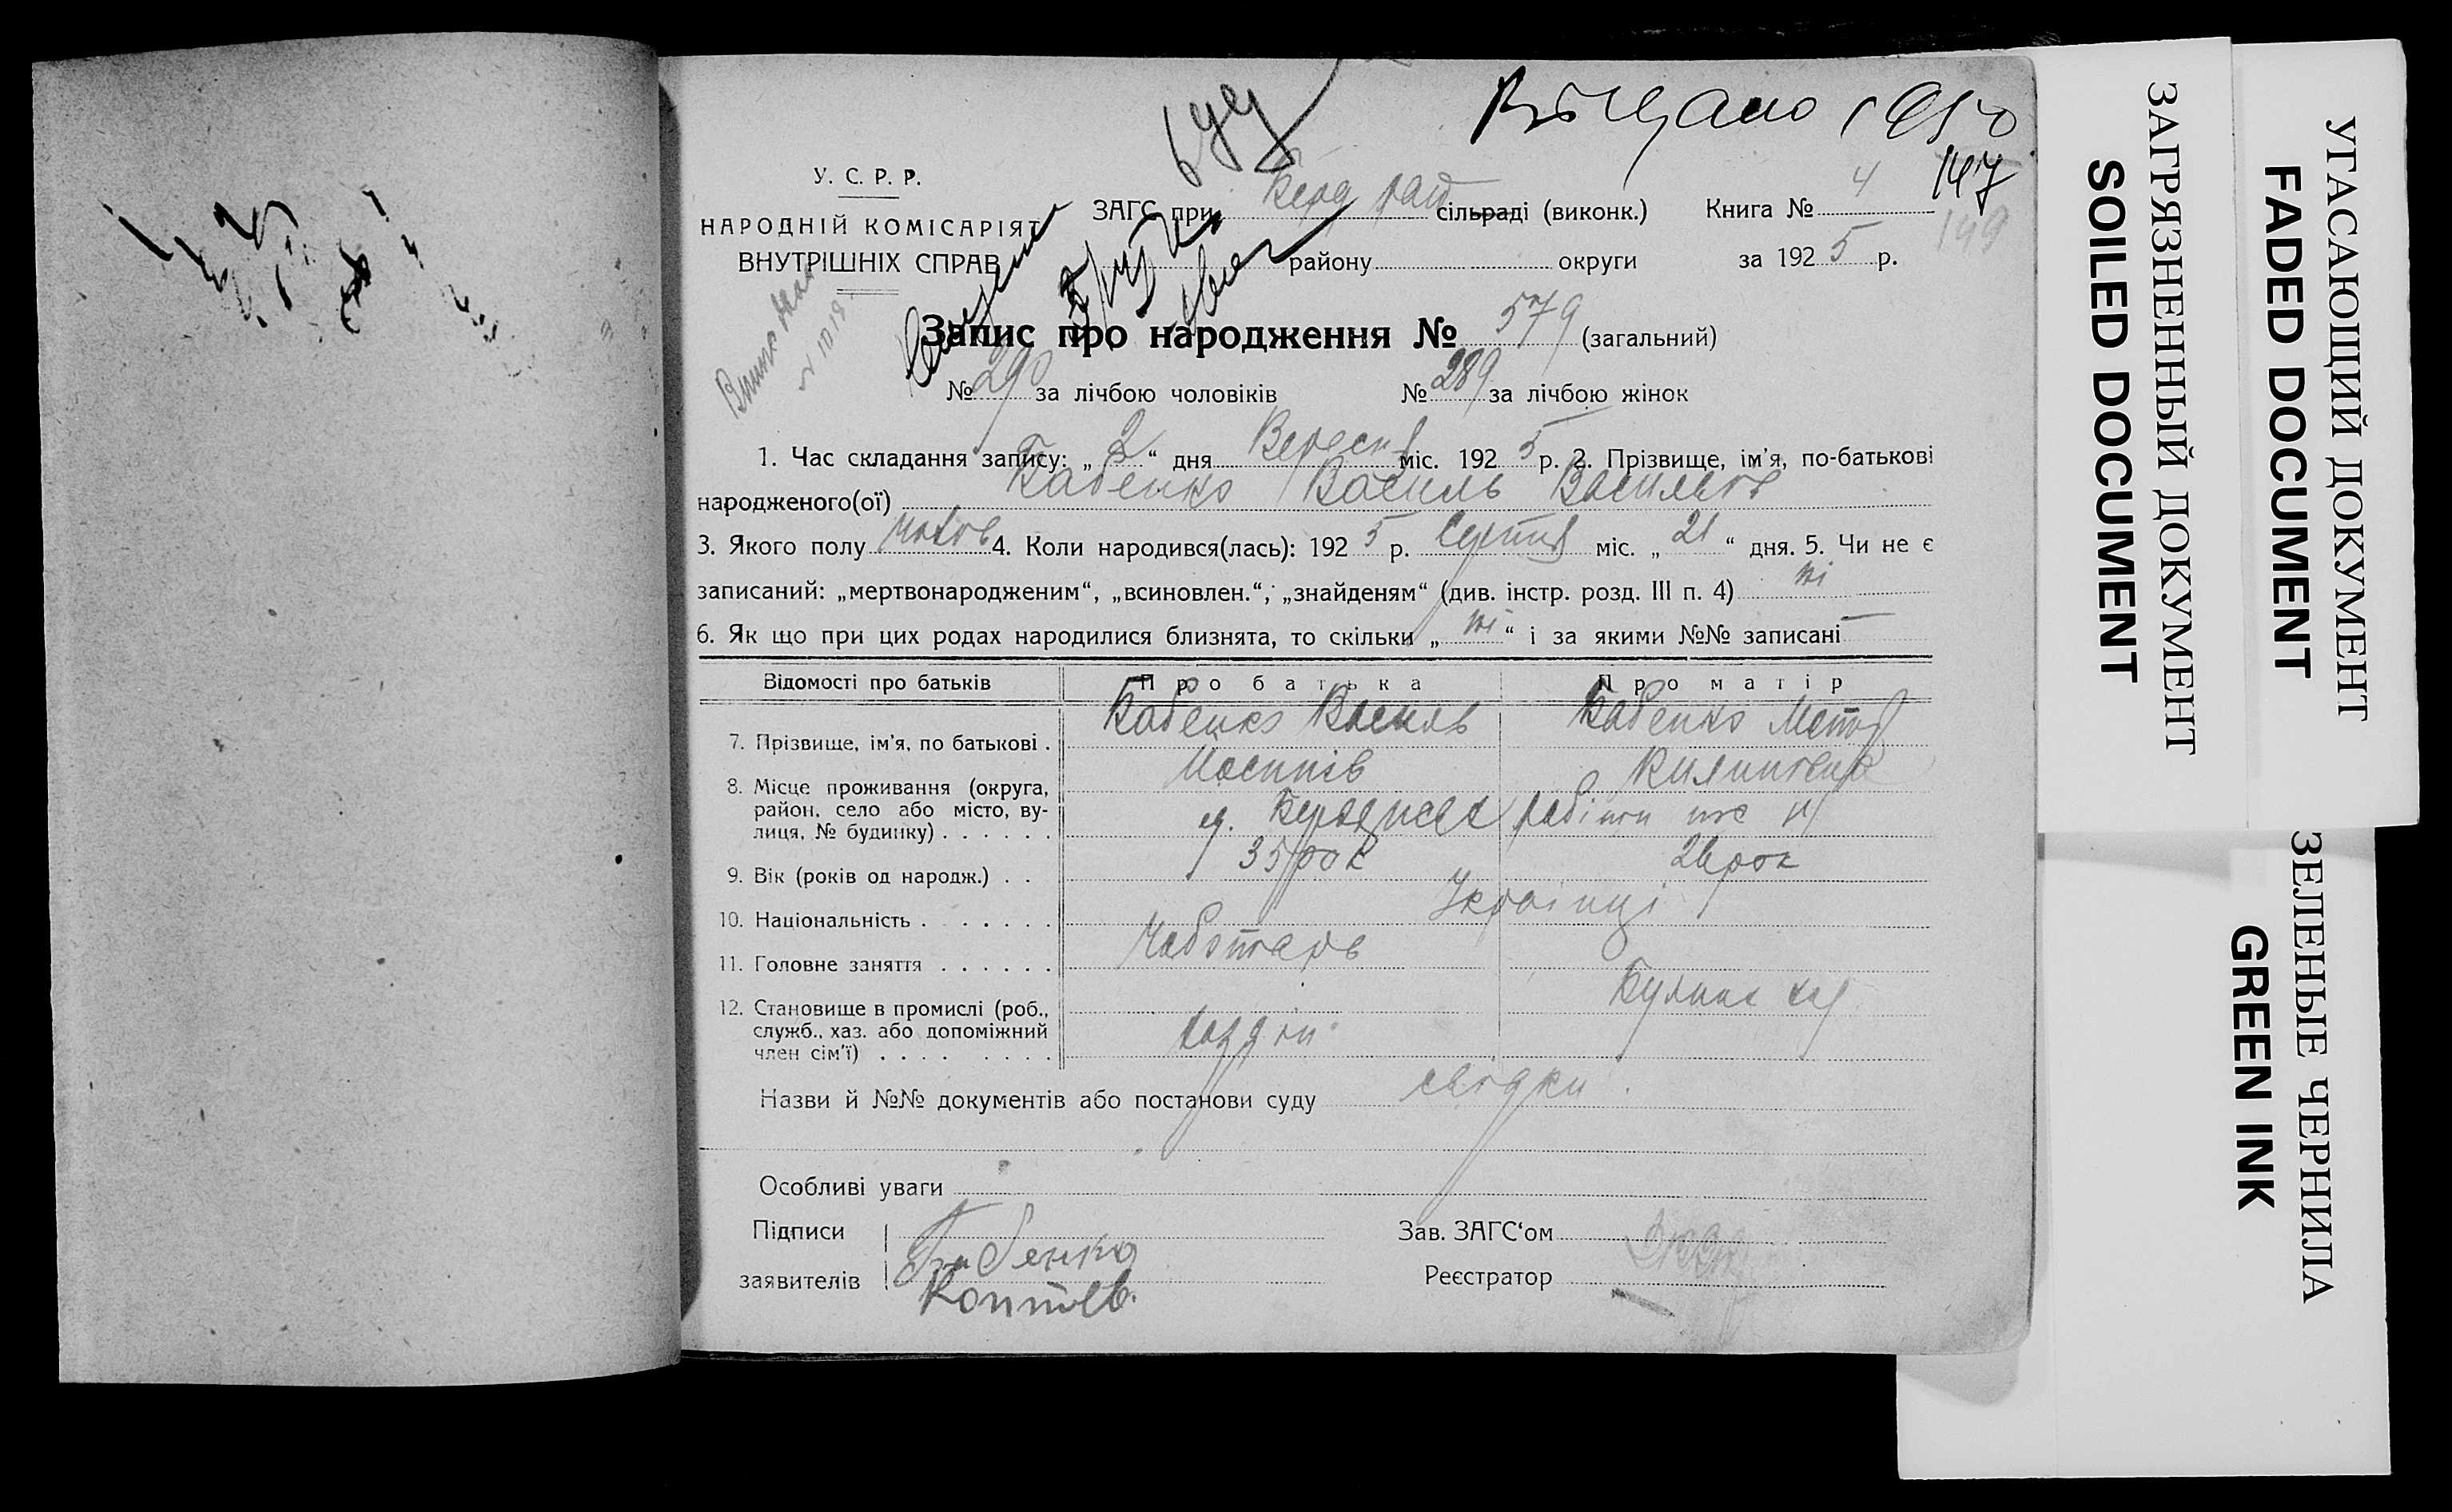 147
149
У. С. Р. Р.
НАРОДНІЙ КОМІСАРІЯТ
ВНУТРІШНІХ СПРАВ
ЗАГС при Берд рай сільраді (виконк.) Книга № 4
району округи за 1925 р.
Запис про народження № 579 (загальний)
№ 290 за лічбою чоловіків № 289 за лічбою жінок
1. Час складання запису: „2“ дня Вересня міс. 1925 р. 2. Прізвище, ім’я, по-батькові
народженого(ої) Бабенко Василь Васильов
3. Якого полу 4. Коли народився(лась): 1925 р. Серпня міс. „21“ дня. 5. Чи не є
записаний: „мертвонародженим“, „всиновлен.“, „знайденям“ (див. інстр. розд. III п. 4) ні
6. Як що при цих родах народилися близнята, то скільки „ні“ і за якими №№ записані —
Відомості про батьків Про батька Про матір
7. Прізвище, ім’я, по батькові . Бабенко Василь Бабенко
8. Місце проживання (округа, район, село або місто, вулиця, № будинку) . . . . . .
9. Вік (років од народж.) . . 35 рок 26 рок
10. Національність . . . . . . Українці
11. Головне заняття . . . . . . Чоботарь
12. Становище в промислі (роб., служб., хаз. або допоміжний член сім’ї) . . . . . . . .
Назви й №№ документів або постанови суду свідки
Особливі уваги
Підписи Бабенко Зав. ЗАГС‘ом
заявителів Коптєв. Реєстратор
ЗАГРЯЗНЕННЫЙ ДОКУМЕНТ
SOILED DOCUMENT
УГАСАЮЩИЙ ДОКУМЕНТ
FADED DOCUMENT
ЗЕЛЕНЫЕ ЧЕРНИЛА
GREEN INK